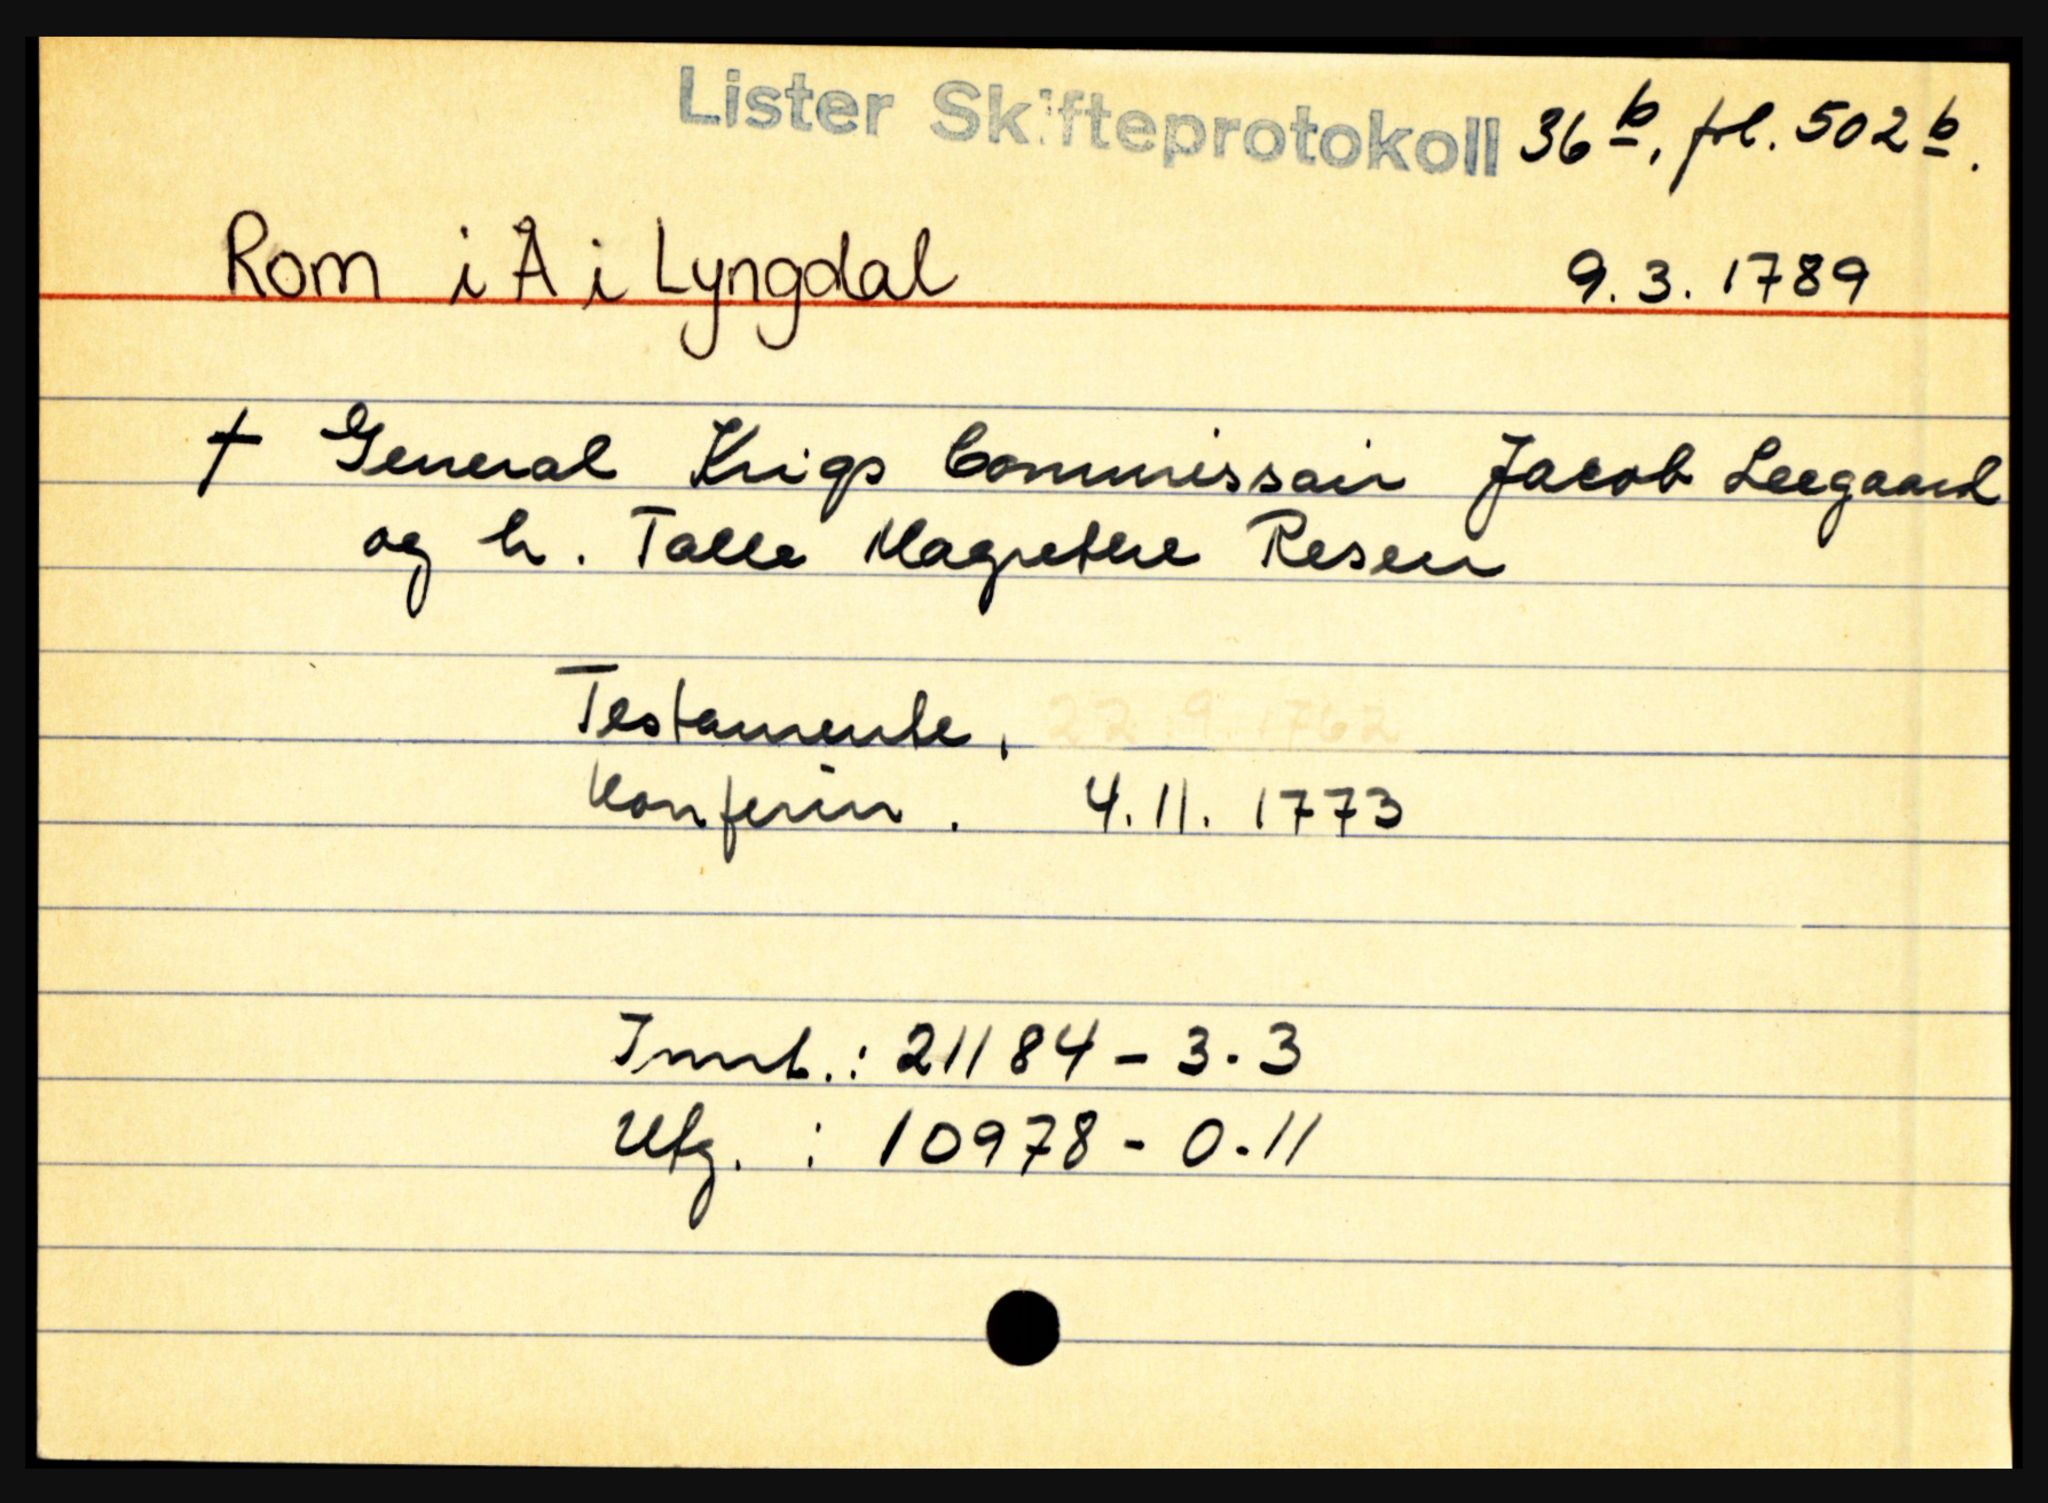 Lister Skifteprotokoll 36 b, fol. 502 b.
Rom i Å i Lyngdal 9.3.1789
† General Krigs Commissair Jacob Leegaard
og h. Talle Magrethe Resen
Testamente, 22.9.1762
Konferin. 4.11.1773
Innb.: 21184-3-3
Utg. : 10978-0-11